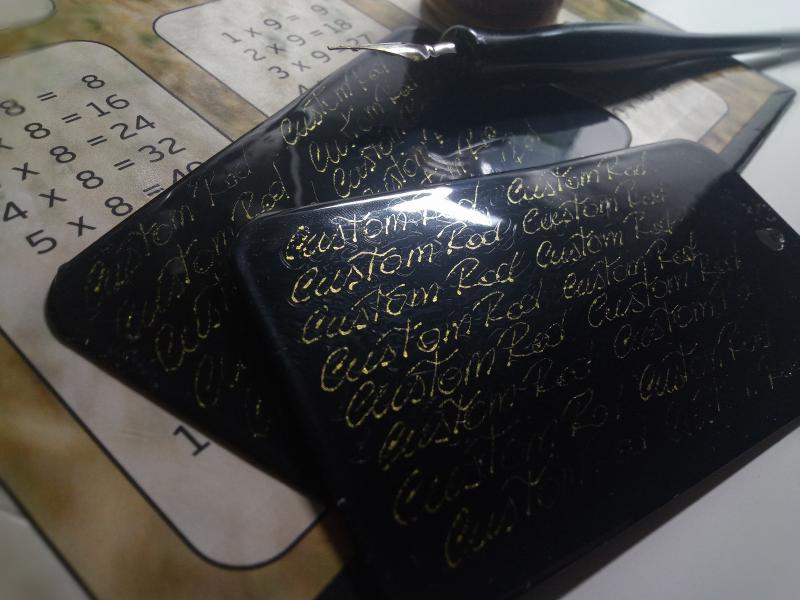 1 x 9 = 9
2 x 9 = 18
3 x 9 = 27
8 = 8
x 8 = 16
x 8 = 24
4 x 8 = 32
5 x 8 = 40
1
Custom Rod
Custom Rod
Custom
Custom
Custom Rod
Custom Rod
Custom
Custom
Custom Rod Custom Rod
Custom Rod Custom Rod
Custom Rod Custom Rod
Custom Rod Custom Rod
Custom Rod Custom Rod
Custom Rod Custom Rod
Custom Rod Custom Rod
Custom Rod